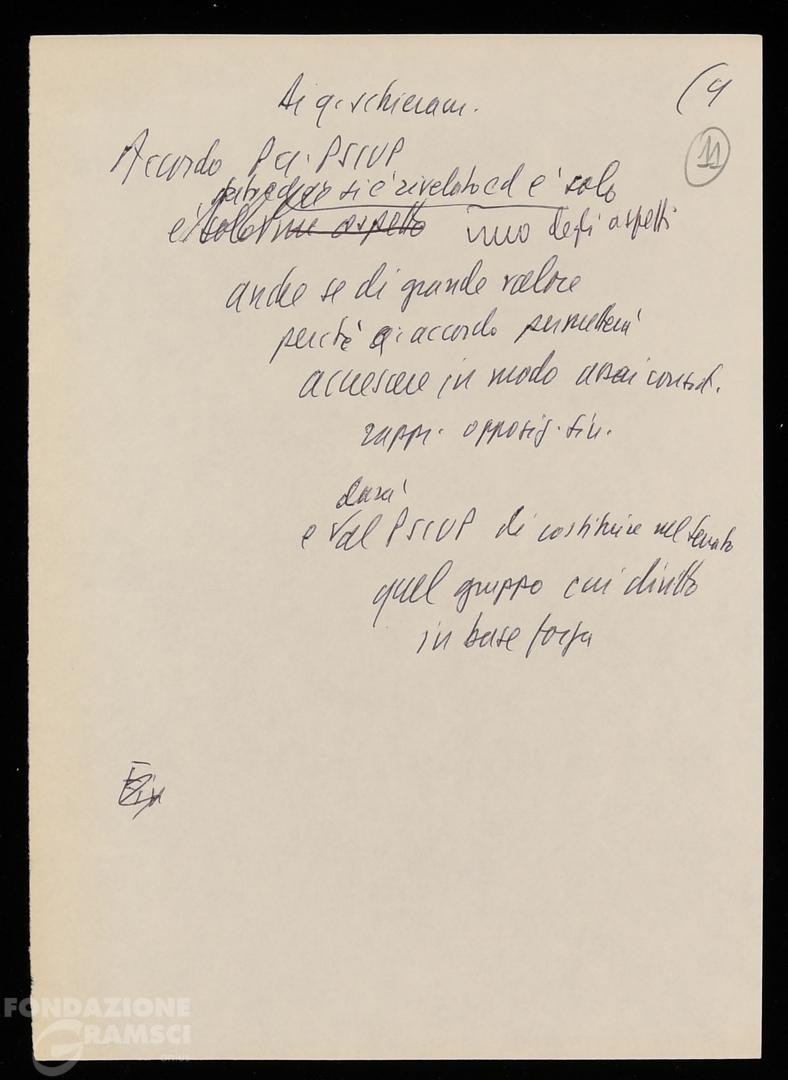 Di q. schieram.
(9
11
Accordo Pci. PSIUP
si è rivelato ed è solo
è solo un aspetto uno degli aspetti
anche se di grande valore
perché q. accordo permetterà
accrescere in modo assai consid.
rappr. opposiz. sin.
darà
e al PSIUP di costituire nel Senato
quel gruppo cui diritto
in base forza
FONDAZIONE
GRAMSCI
ONLUS